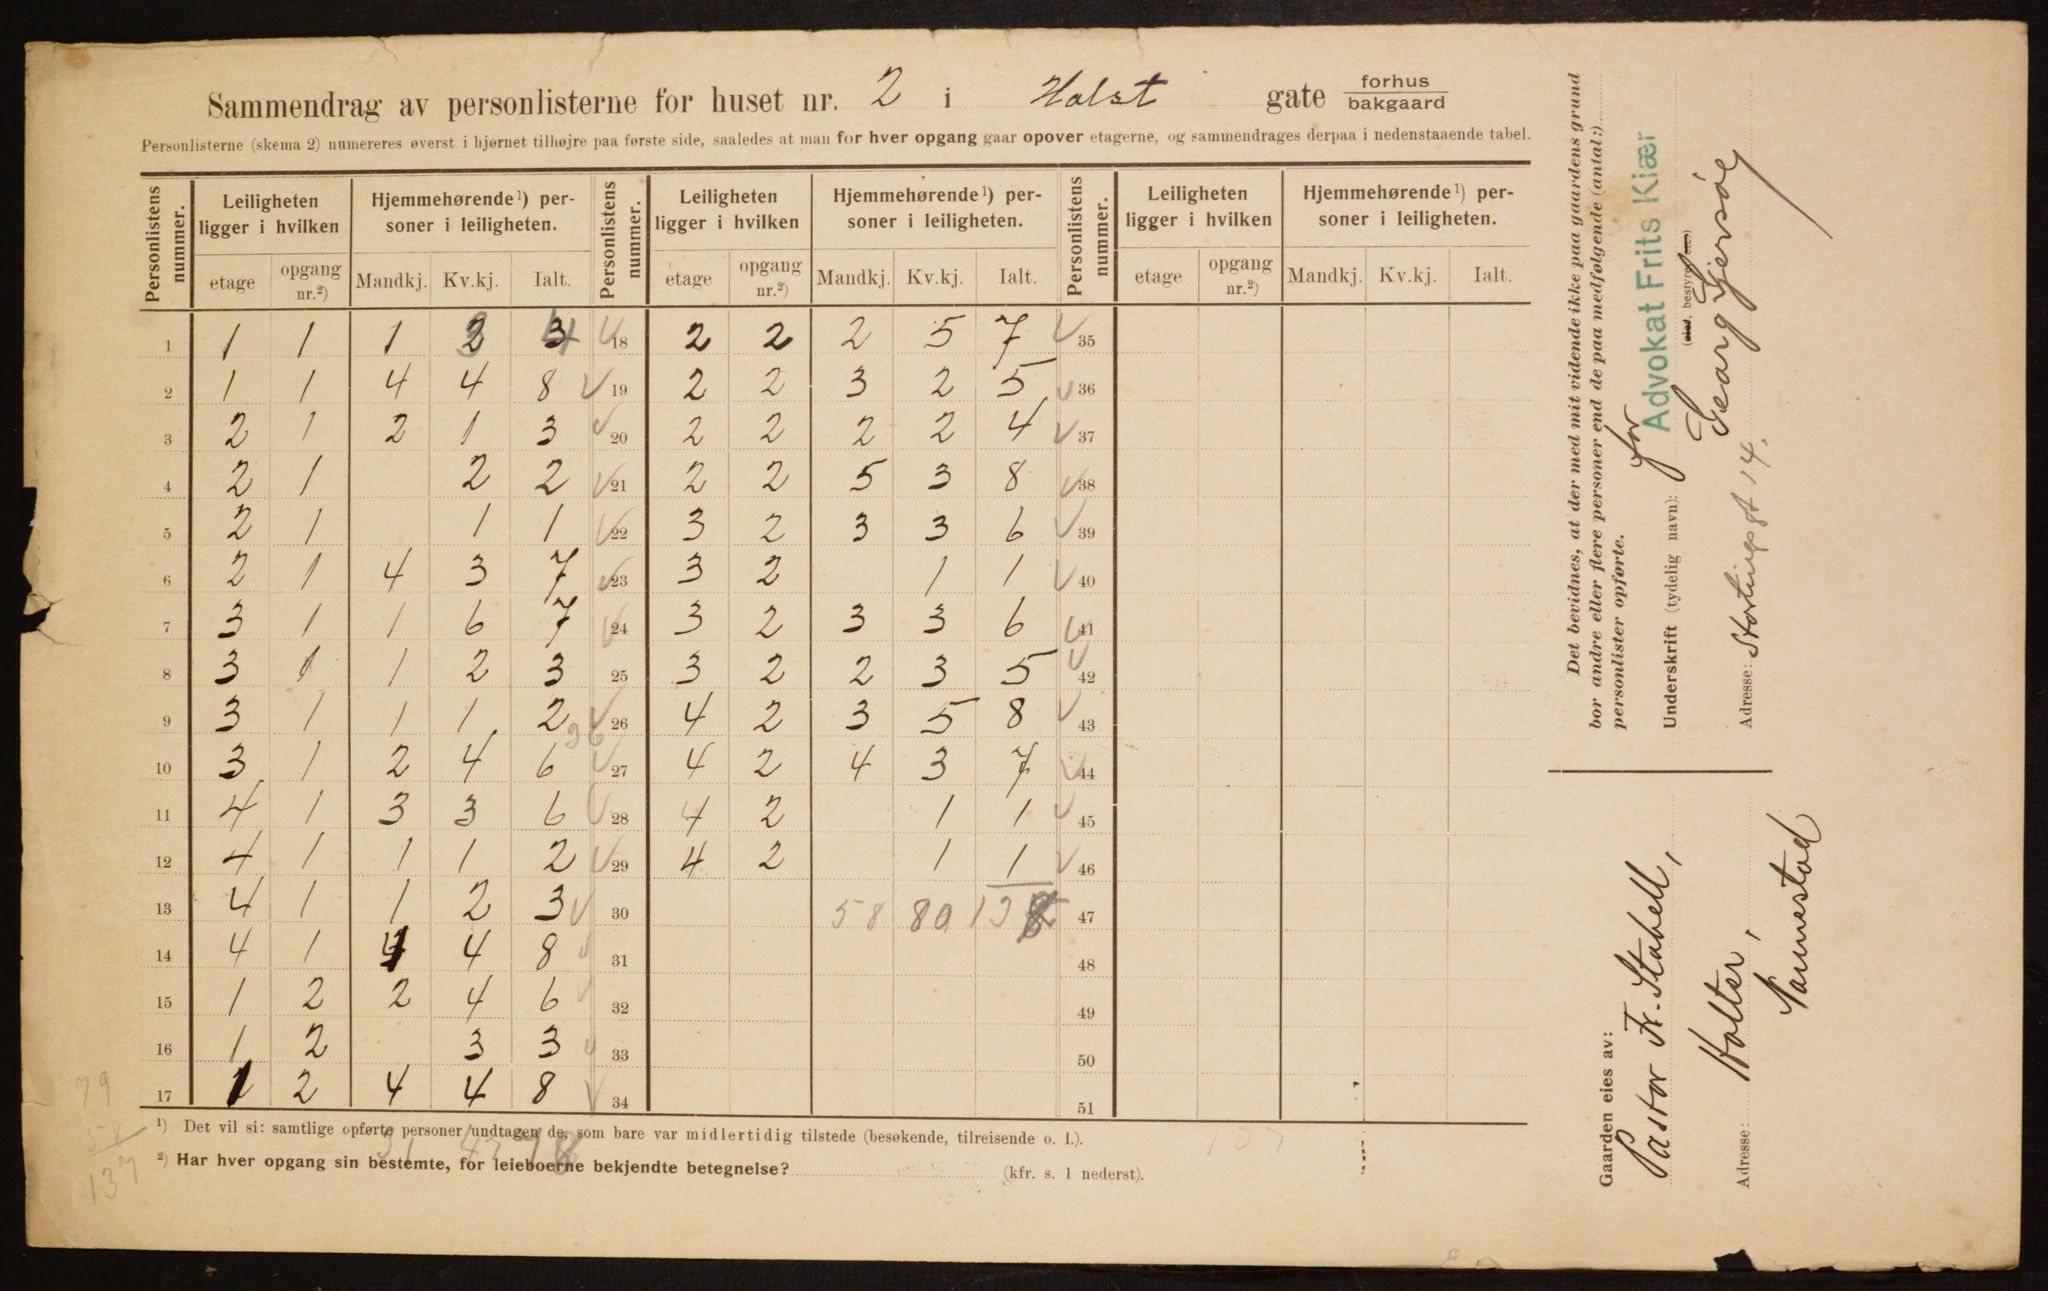 Sammendrag av personlisterne for huset nr. 2 i Holst gate forhus bakgaard
Personlisterne (skema 2) numereres øverst i hjørnet tilhøjre paa første side, saaledes at man for hver opgang gaar opover etagerne, og sammendrages derpaa i nedenstaaende tabel.
Personlistens nummer. Leiligheten ligger i hvilken Hjemmehørende ¹) personer i leiligheten. Personlistens nummer. Leiligheten ligger i hvilken Hjemmehørende ¹) personer i leiligheten. Personlistens nummer. Leiligheten ligger i hvilken Hjemmehørende ¹) personer i leiligheten.
etage opgang nr.²) Mandkj. Kv.kj. Ialt. etage opgang nr.²) Mandkj. Kv.kj. Ialt. etage opgang nr.²) Mandkj. Kv.kj. Ialt.
1 1 1 1 2 3 4 18 2 2 2 5 7 35
2 1 1 4 4 8 19 2 2 3 2 5 36
3 2 1 2 1 3 20 2 2 2 2 4 37
4 2 1 2 2 21 2 2 5 3 8 38
5 2 1 1 1 22 3 2 3 3 6 39
6 2 1 4 3 7 23 3 2 1 1 40
7 3 1 1 6 7 24 3 2 3 3 6 41
8 3 1 1 2 3 25 3 2 2 3 5 42
9 3 1 1 1 2 26 4 2 3 5 8 43
10 3 1 2 4 6 27 4 2 4 3 7 44
11 4 1 3 3 6 28 4 2 1 1 45
12 4 1 1 1 2 29 4 2 1 1 46
13 4 1 1 2 3 30 58 80 138 47
14 4 1 4 4 8 31 48
15 1 2 2 4 6 32 49
16 1 2 3 3 33 50
17 1 2 4 4 8 34 51
79
58
137
¹) Det vil si: samtlige opførte personer undtagen de, som bare var midlertidig tilstede (besøkende, tilreisende o. l.).
31 47 78
²) Har hver opgang sin bestemte, for leieboerne bekjendte betegnelse? (kfr. s. 1 nederst).
Det bevidnes, at der med mit vidende ikke paa gaardens grund
bor andre eller flere personer end de paa medfølgende (antal:)
personlister opførte.
for
Advokat Frits Kiær
Underskrift (tydelig navn): Georg
(eier, bestyrer etc.)
Adresse: Stortingsgt 14.
Gaarden eies av:
Pastor Fr. Stabell,
Adresse: Holter,
Nannestad